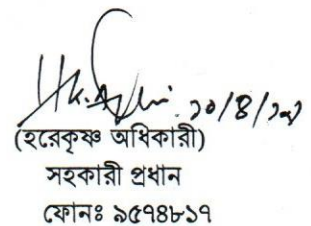 ২০/৪/২০
(হরেকৃষ্ণ অধিকারী)
সহকারী প্রধান
ফোনঃ ৯৫৭৪৮১৭